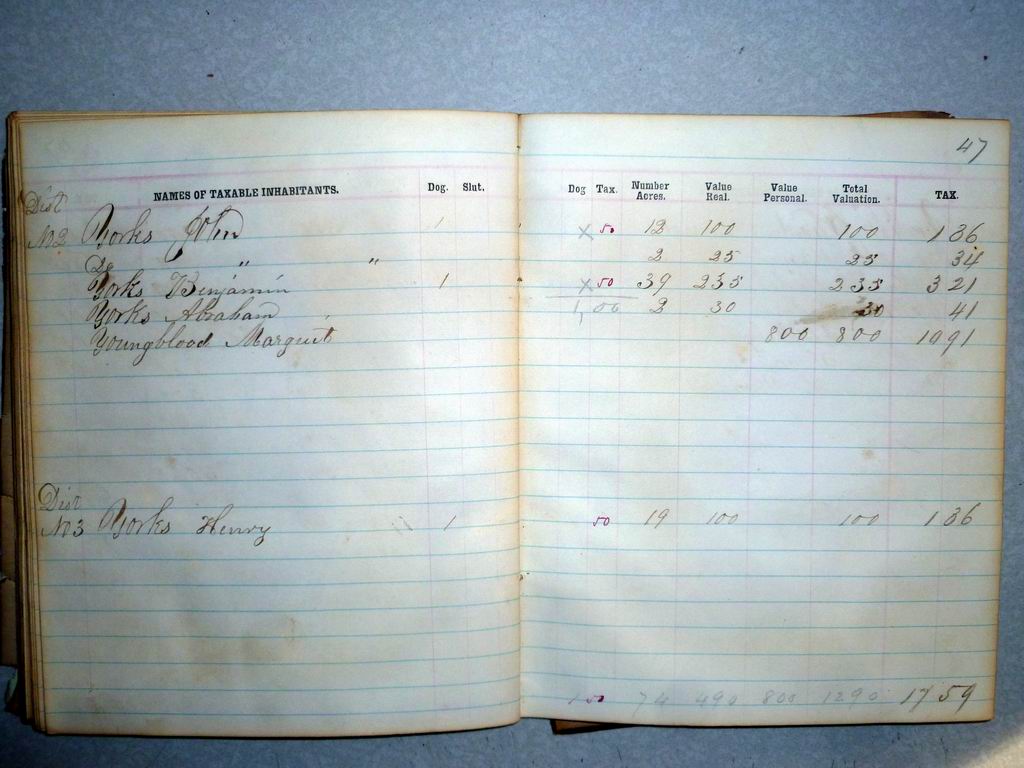 47
NAMES OF TAXABLE INHABITANTS. Dog. Slut. Dog Tax. Number Acres. Value Real. Value Personal. Total Valuation. TAX.
Dist
No 2 Yorks John 1 x 50 12 100 100 1 36
Do " " 2 25 25 34
Yorks Benjamin 1 x 50 39 235 235 3 21
Yorks Abraham 1,00 2 30 30 41
Youngblood 800 800 10 91
Dist
No 3 Yorks Henry 1 50 19 100 100 1 36
1 50 74 490 800 1290 17 59